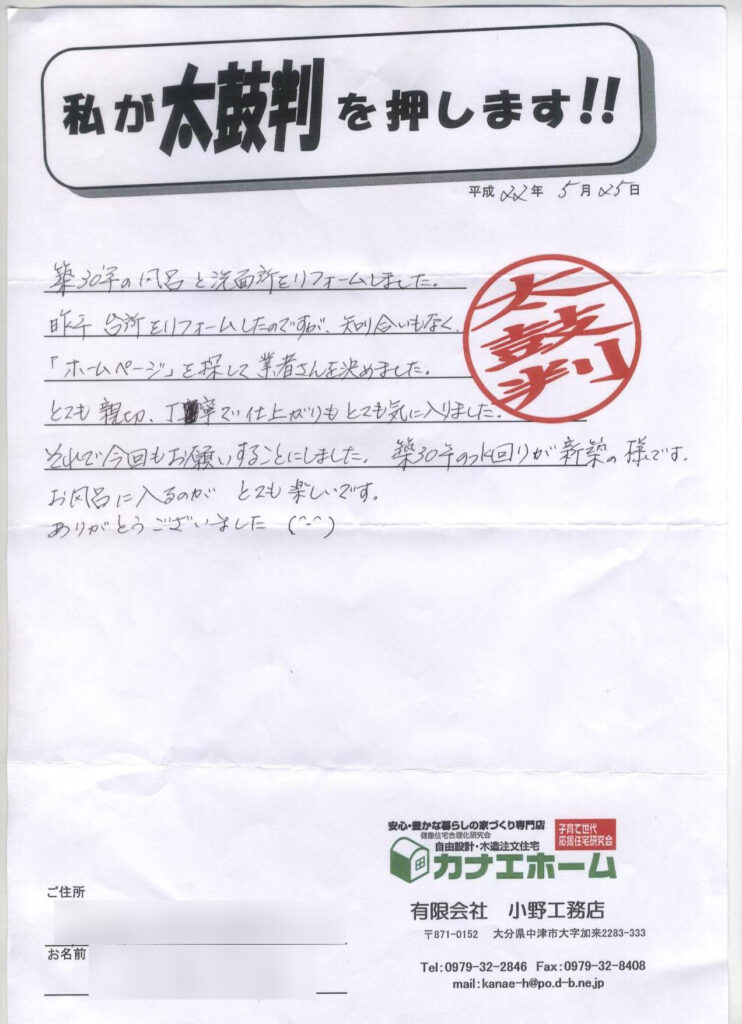 私が太鼓判を押します!!
平成22年 5月25日
築30年の風呂と洗面所をリフォームしました。
昨年 台所をリフォームしたのですが、知り合いもなく、
「ホームページ」を探して業者さんを決めました。
とても親切、丁寧で仕上がりもとても気に入りました。
それで今回もお願いすることにしました。 築30年の水回りが新築の様です。
お風呂に入るのが とても楽しいです。
ありがとうございました (^-^)
太鼓判
安心・豊かな暮らしの家づくり専門店
健康住宅合理化研究会
自由設計・木造注文住宅
子育て世代
応援住宅研究会
カナエホーム
有限会社 小野工務店
〒871-0152 大分県中津市大字加来2283-333
Tel:0979-32-2846 Fax:0979-32-8408
mail:kanae-h@po.d-b.ne.jp
ご住所
お名前